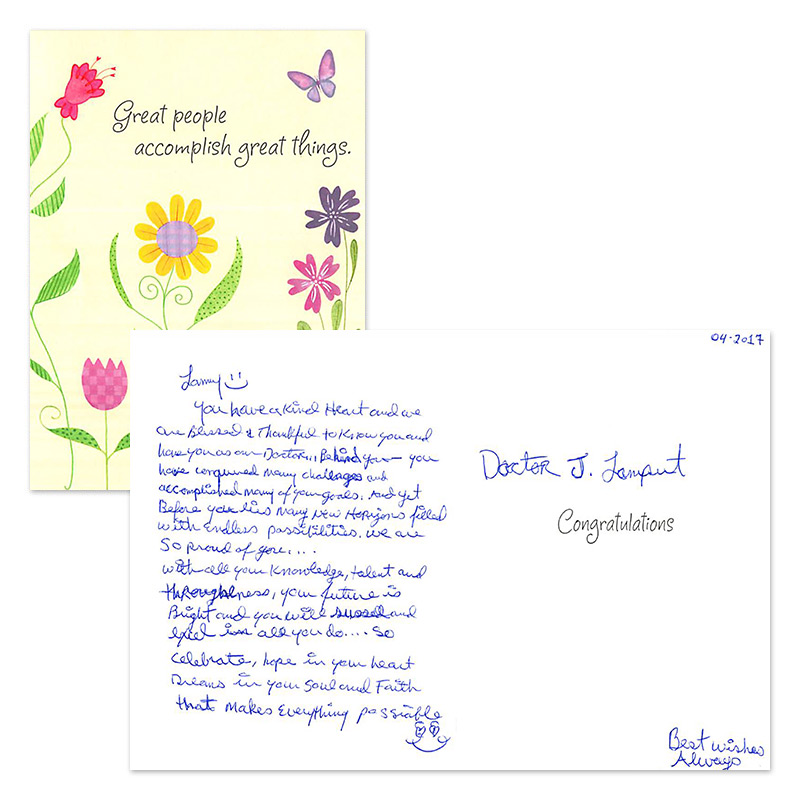 Great people
accomplish great things.
04-2017
Lanny
You have a Kind Heart and we
are Blessed & Thankful to Know you and
have you as our Doctor... Behind you — you
have conquered many challenges and
accomplished many of your goals. And yet
Before you lies Many New Horizons filled
with endless possibilities. we are
So proud of you....
with all your Knowledge, talent and
throughness, your future is
Bright and you will and
Excel in all you do.... So
Celebrate, hope in your heart
Dreams in your Soul and Faith
that Makes Everything possiable
Doctor J. Lamput
Congratulations
Best wishes
Always